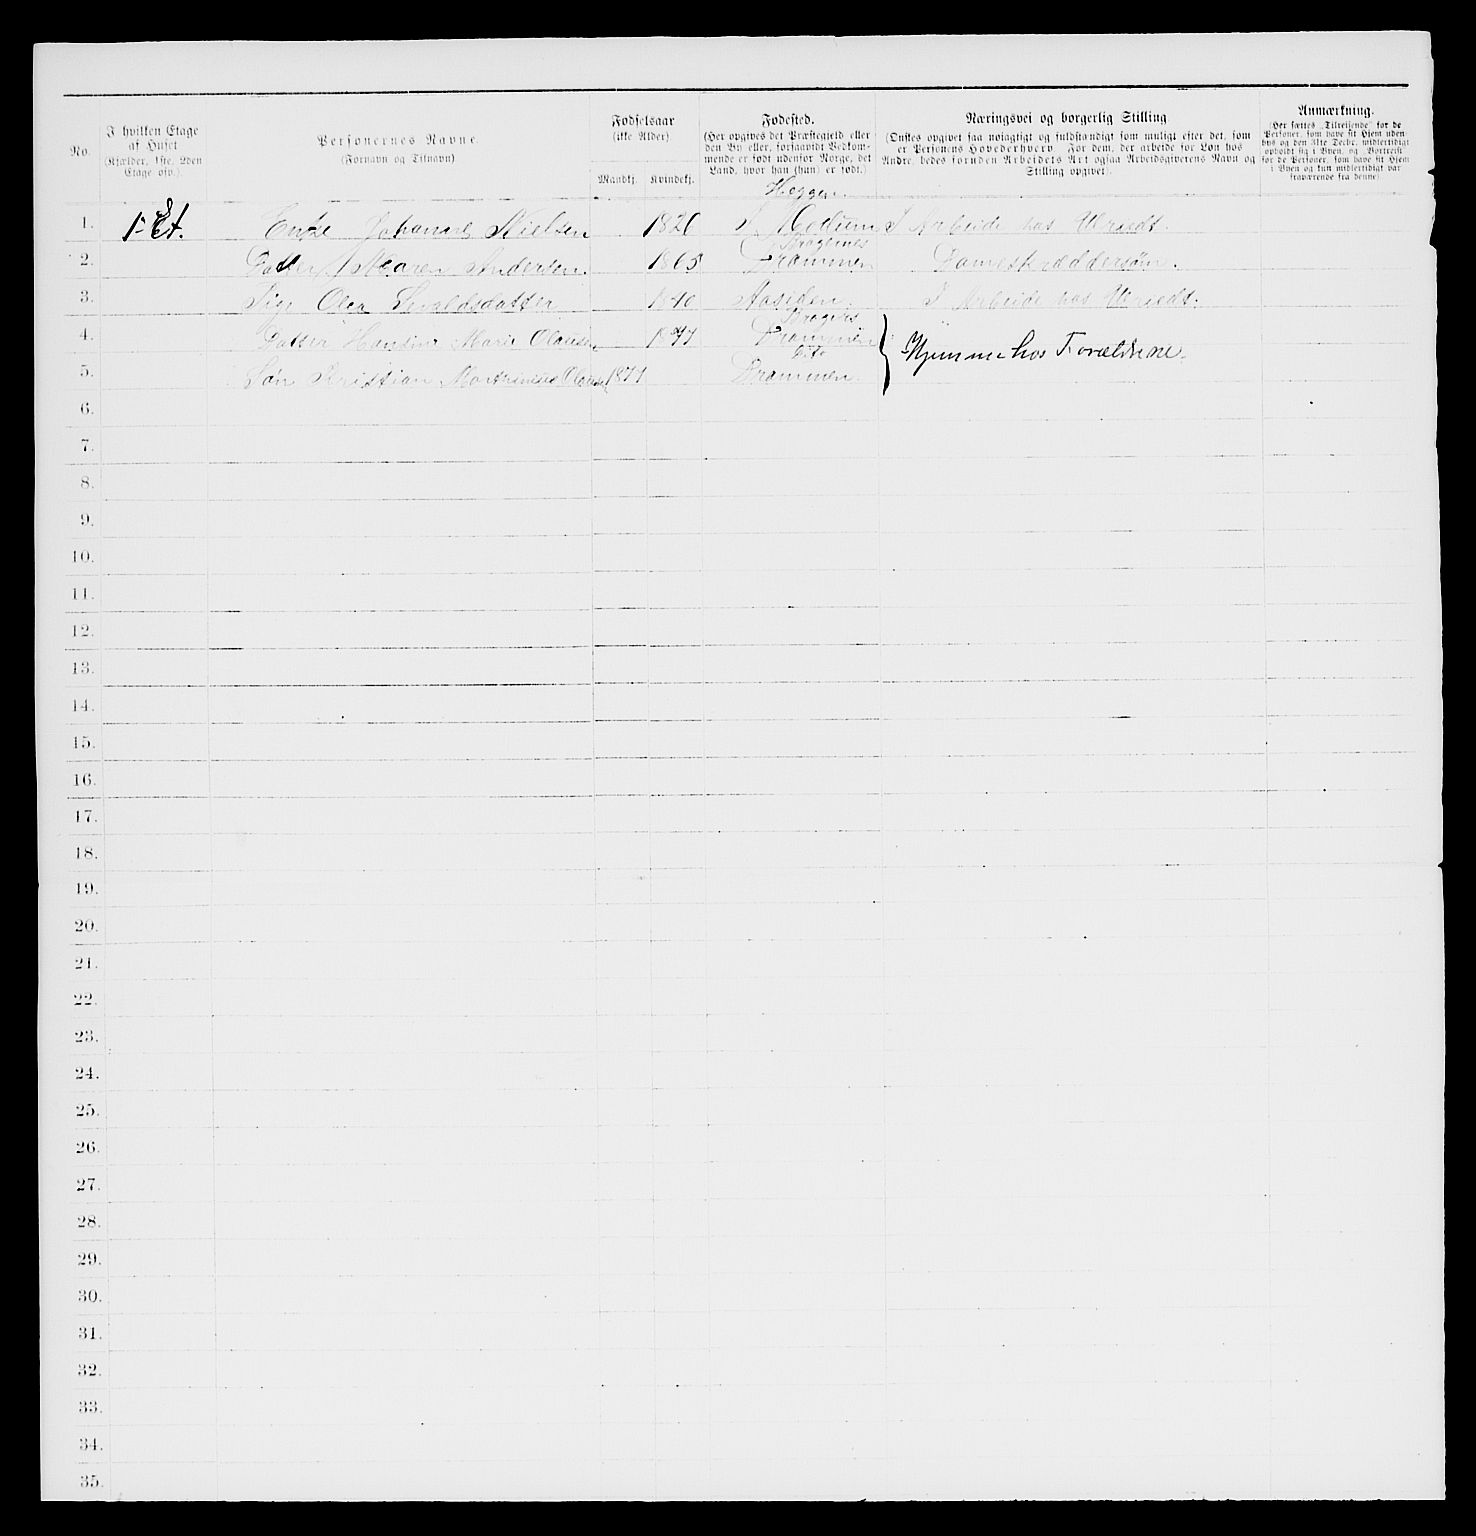 No.
I hvilken Etage
af Huset
(Kjælder, 1ste, 2den
Etage osv.).
Personernes Navne.
(Fornavn og Tilnavn)
Fødselsaar
(ikke Alder).
Mandkj. Kvindekj.
Fødested.
(Her opgives det Præstegjeld eller
den By eller, forsaavidt Vedkom-
mende er født udenfor Norge, det
Land, hvor han (hun) er født.)
Næringsvei og borgerlig Stilling
(Ønskes opgivet saa nøiagtigt og fuldstændigt som muligt efter det, som
er Personens Hovederhverv. For dem, der arbeide for Løn hos
Andre, bedes foruden Arbeidets Art ogsaa Arbeidsgiverens Navn og
Stilling opgivet).
Anmærkning.
(Her sættes „Tilreisende" for de
Personer, som have sit Hjem uden
bys og den 31te Decbr. midlertidigt
opholdt sig i Byen, og „Bortreist"
for de Personer, som have sit Hjem
i Byen og kun midlertidigt var
fraværende fra denne).
Heggen
1. 1ste Et. Enke Johanne Nielsen 1820 Modum I Arbeide hos
Bragernes
2. Datter Maren Andersen. 1865 Drammen Dameskræddersøm.
3. Pige Olea 1840 Aasiden. I Arbeide hos
Bragers
4. Datter Hansine Marie Olausen 1877 Drammen Hjemme hos Forældrene.
Dito
5. Søn Kristian Marthinius Olausen 1877 Drammen.
6.
7.
8.
9.
10.
11.
12.
13.
14.
15.
16.
17.
18.
19.
20.
21.
22.
23.
24.
25.
26.
27.
28.
29.
30.
31.
32.
33.
34.
35.